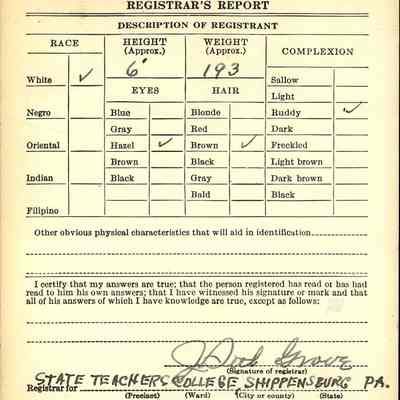 REGISTRAR'S REPORT
DESCRIPTION OF REGISTRANT
RACE HEIGHT (Approx.) WEIGHT (Approx.) COMPLEXION
White ✓ 6' 193 Sallow
EYES HAIR Light
Negro Blue Blonde Ruddy ✓
Gray Red Dark
Oriental Hazel ✓ Brown ✓ Freckled
Brown Black Light brown
Indian Black Gray Dark brown
Bald Black
Filipino
Other obvious physical characteristics that will aid in identification
I certify that my answers are true; that the person registered has read or has had
read to him his own answers; that I have witnessed his signature or mark and that
all of his answers of which I have knowledge are true, except as follows:
Grove
(Signature of registrar)
STATE TEACHERS COLLEGE, SHIPPENSBURG PA.
Registrar for
(Precinct) (Ward) (City or county) (State)